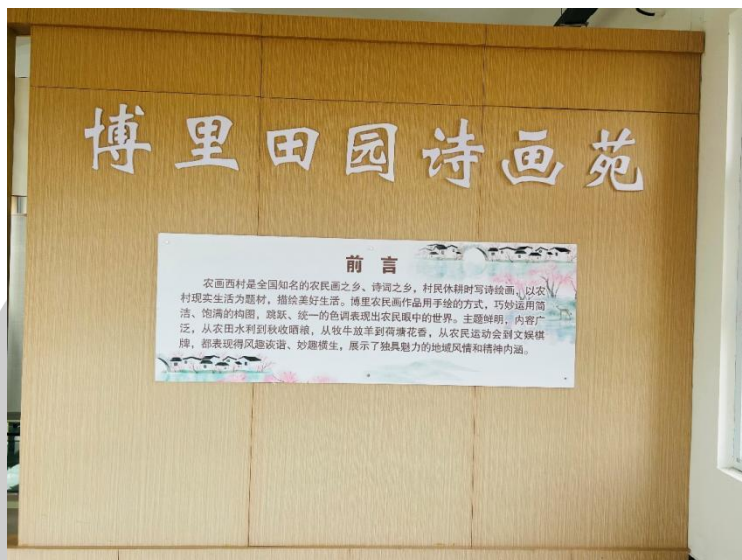 博里田园诗画苑
前言
农画西村是全国知名的农民画之乡、诗词之乡，村民休耕时写诗绘画，以农
村现实生活为题材，描绘美好生活。博里农民画作品用手绘的方式，巧妙运用简
洁、饱满的构图，跳跃、统一的色调表现出农民眼中的世界。主题鲜明，内容广
泛，从农田水利到秋收晒粮，从牧牛放羊到荷塘花香，从农民运动会到文娱棋
牌，都表现得风趣诙谐、妙趣横生，展示了独具魅力的地域风情和精神内涵。